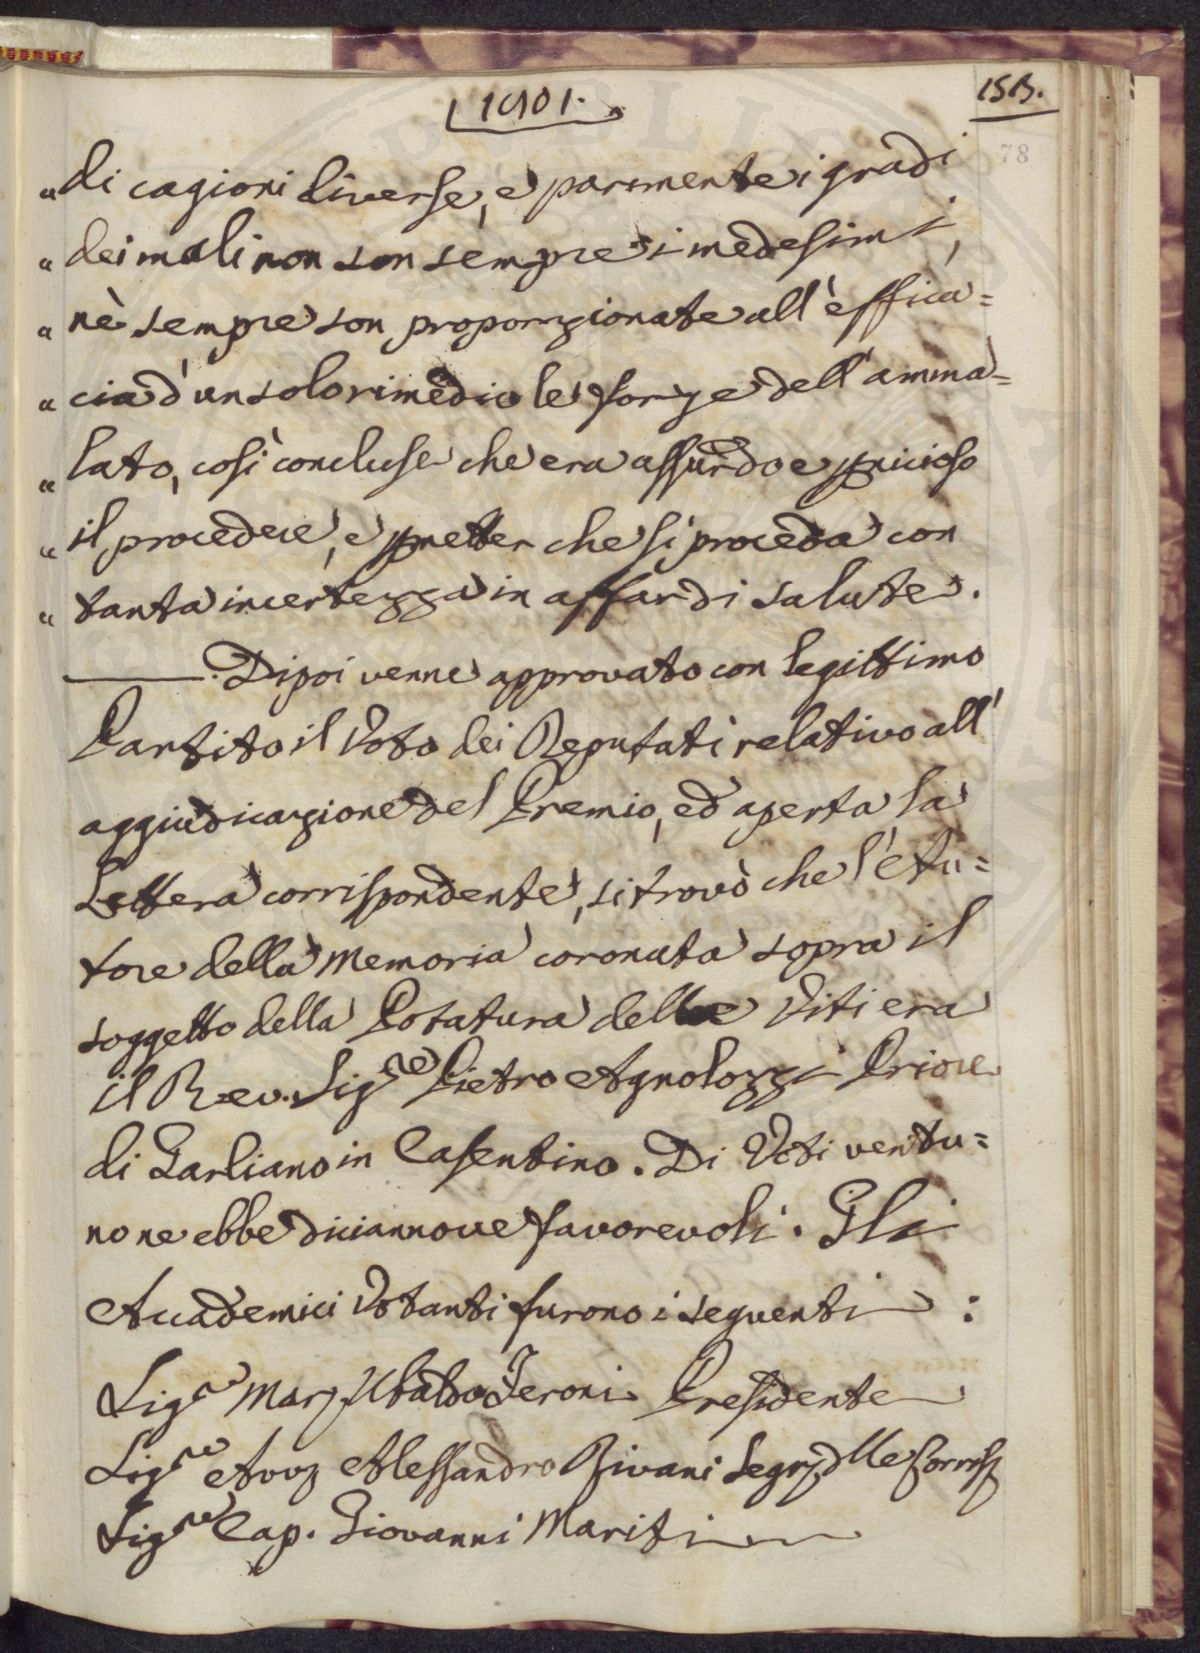 1801.
153.
78
„ di cagioni diverse, e parimente i gradi
„ dei mali non son sempre i medesimi,
„ nè sempre son proporzionate all'effica=
„ cia d'un solo rimedio le forze dell'amma=
„ lato, così concluse che era assurdo e pnicioso
„ il procedere, e pmetter che si proceda con
„ tanta incertezza in affar di salute.
Dipoi venne approvato con legittimo
Partito il Voto dei Deputati relativo all'
aggiudicazione del Premio, ed aperta la
Lettera corrispondente, si trovò che l'Au=
tore della Memoria coronata sopra il
soggetto della Potatura delle Viti era
il Rev. Sigre Pietro Agnolozzi Priore
di Garliano in Casentino. Di Voti ventu=
no ne ebbe diciannove favorevoli. Gli
Accademici Votanti furono i seguenti :
Sigre Marz Ubaldo Feroni Presidente
Sigre Avvo Alessandro Rivani Segr. dlle Corrisp
Sigre Cap. Giovanni Mariti